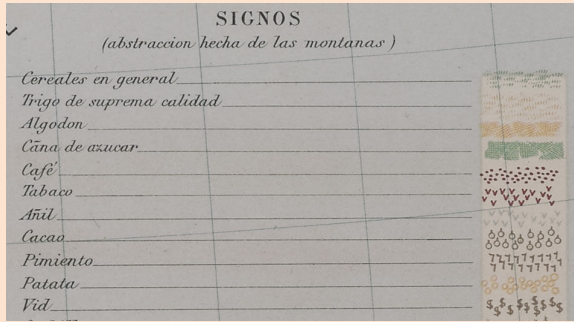 SIGNOS
(abstraccion hecha de las montanas)
Cereales en general
Trigo de suprema calidad
Algodon
Cãna de azucar
Café
Tabaco
Añil
Cacao
Pimiento
Patata
Vid